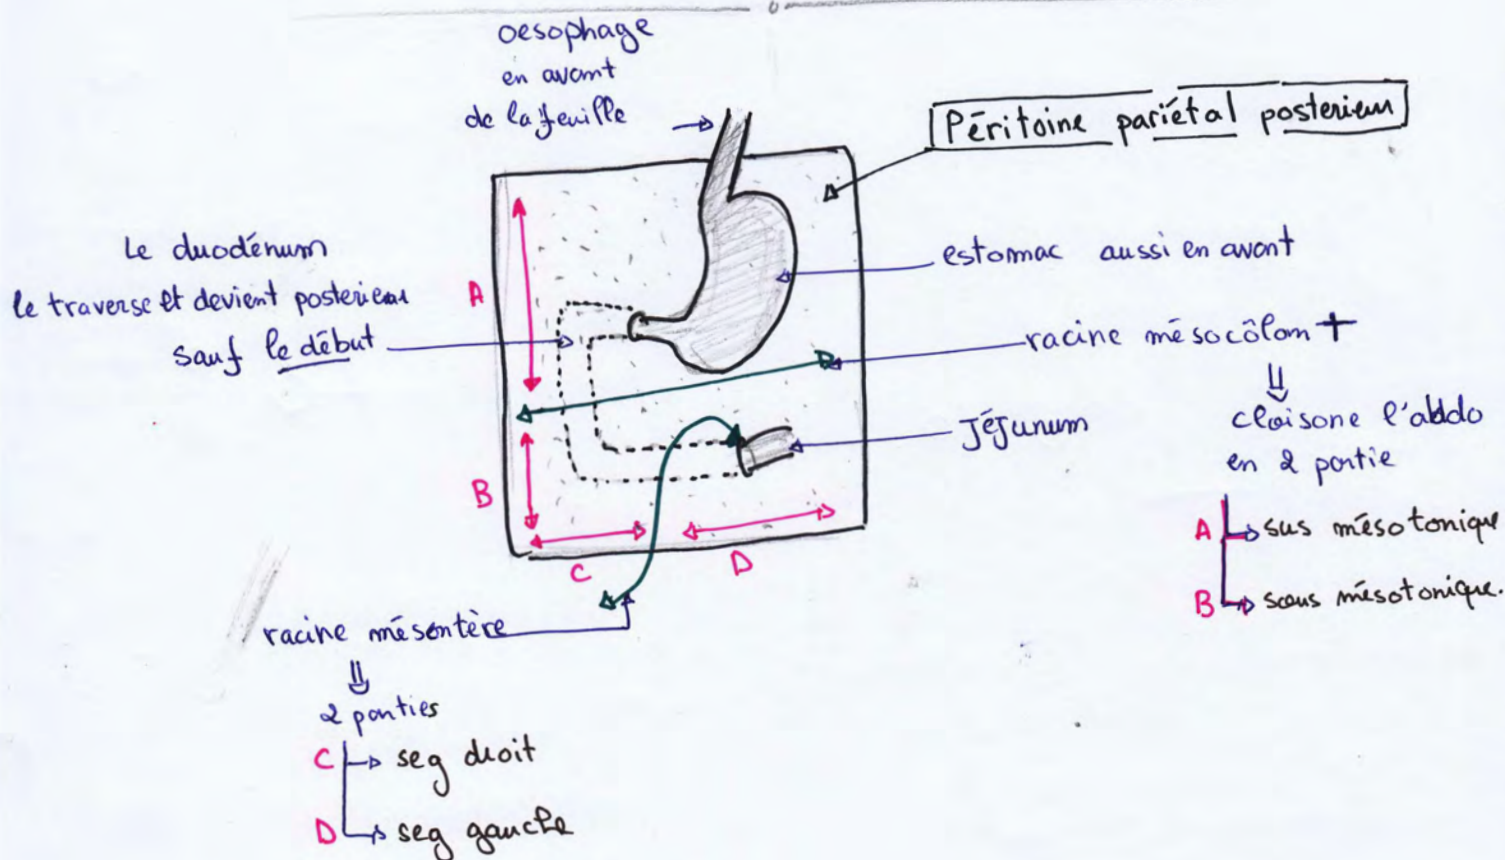 oesophage
en avant
de la feuille
Péritoine pariétal posterieur
Le duodénum
le traverse et devient posterieur
sauf le début
A
estomac aussi en avant
racine mésocôlon +
⇓
cloisone l'abdo
en 2 partie
Jéjunum
B
A → sus mésotonique
B → sous mésotonique.
C
D
racine mésentère
⇓
2 parties
C → seg droit
D → seg gauche